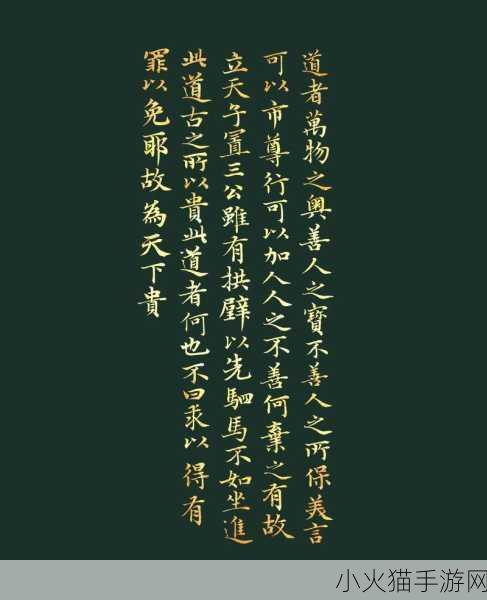 道者萬物之奧善人之寶不善人之所保美言
可以市尊行可以加人人之不善何棄之有故
立天子置三公雖有拱璧以先駟馬不如坐進
此道古之所以貴此道者何也不曰求以得有
罪以免耶故為天下貴
小火猫手游网